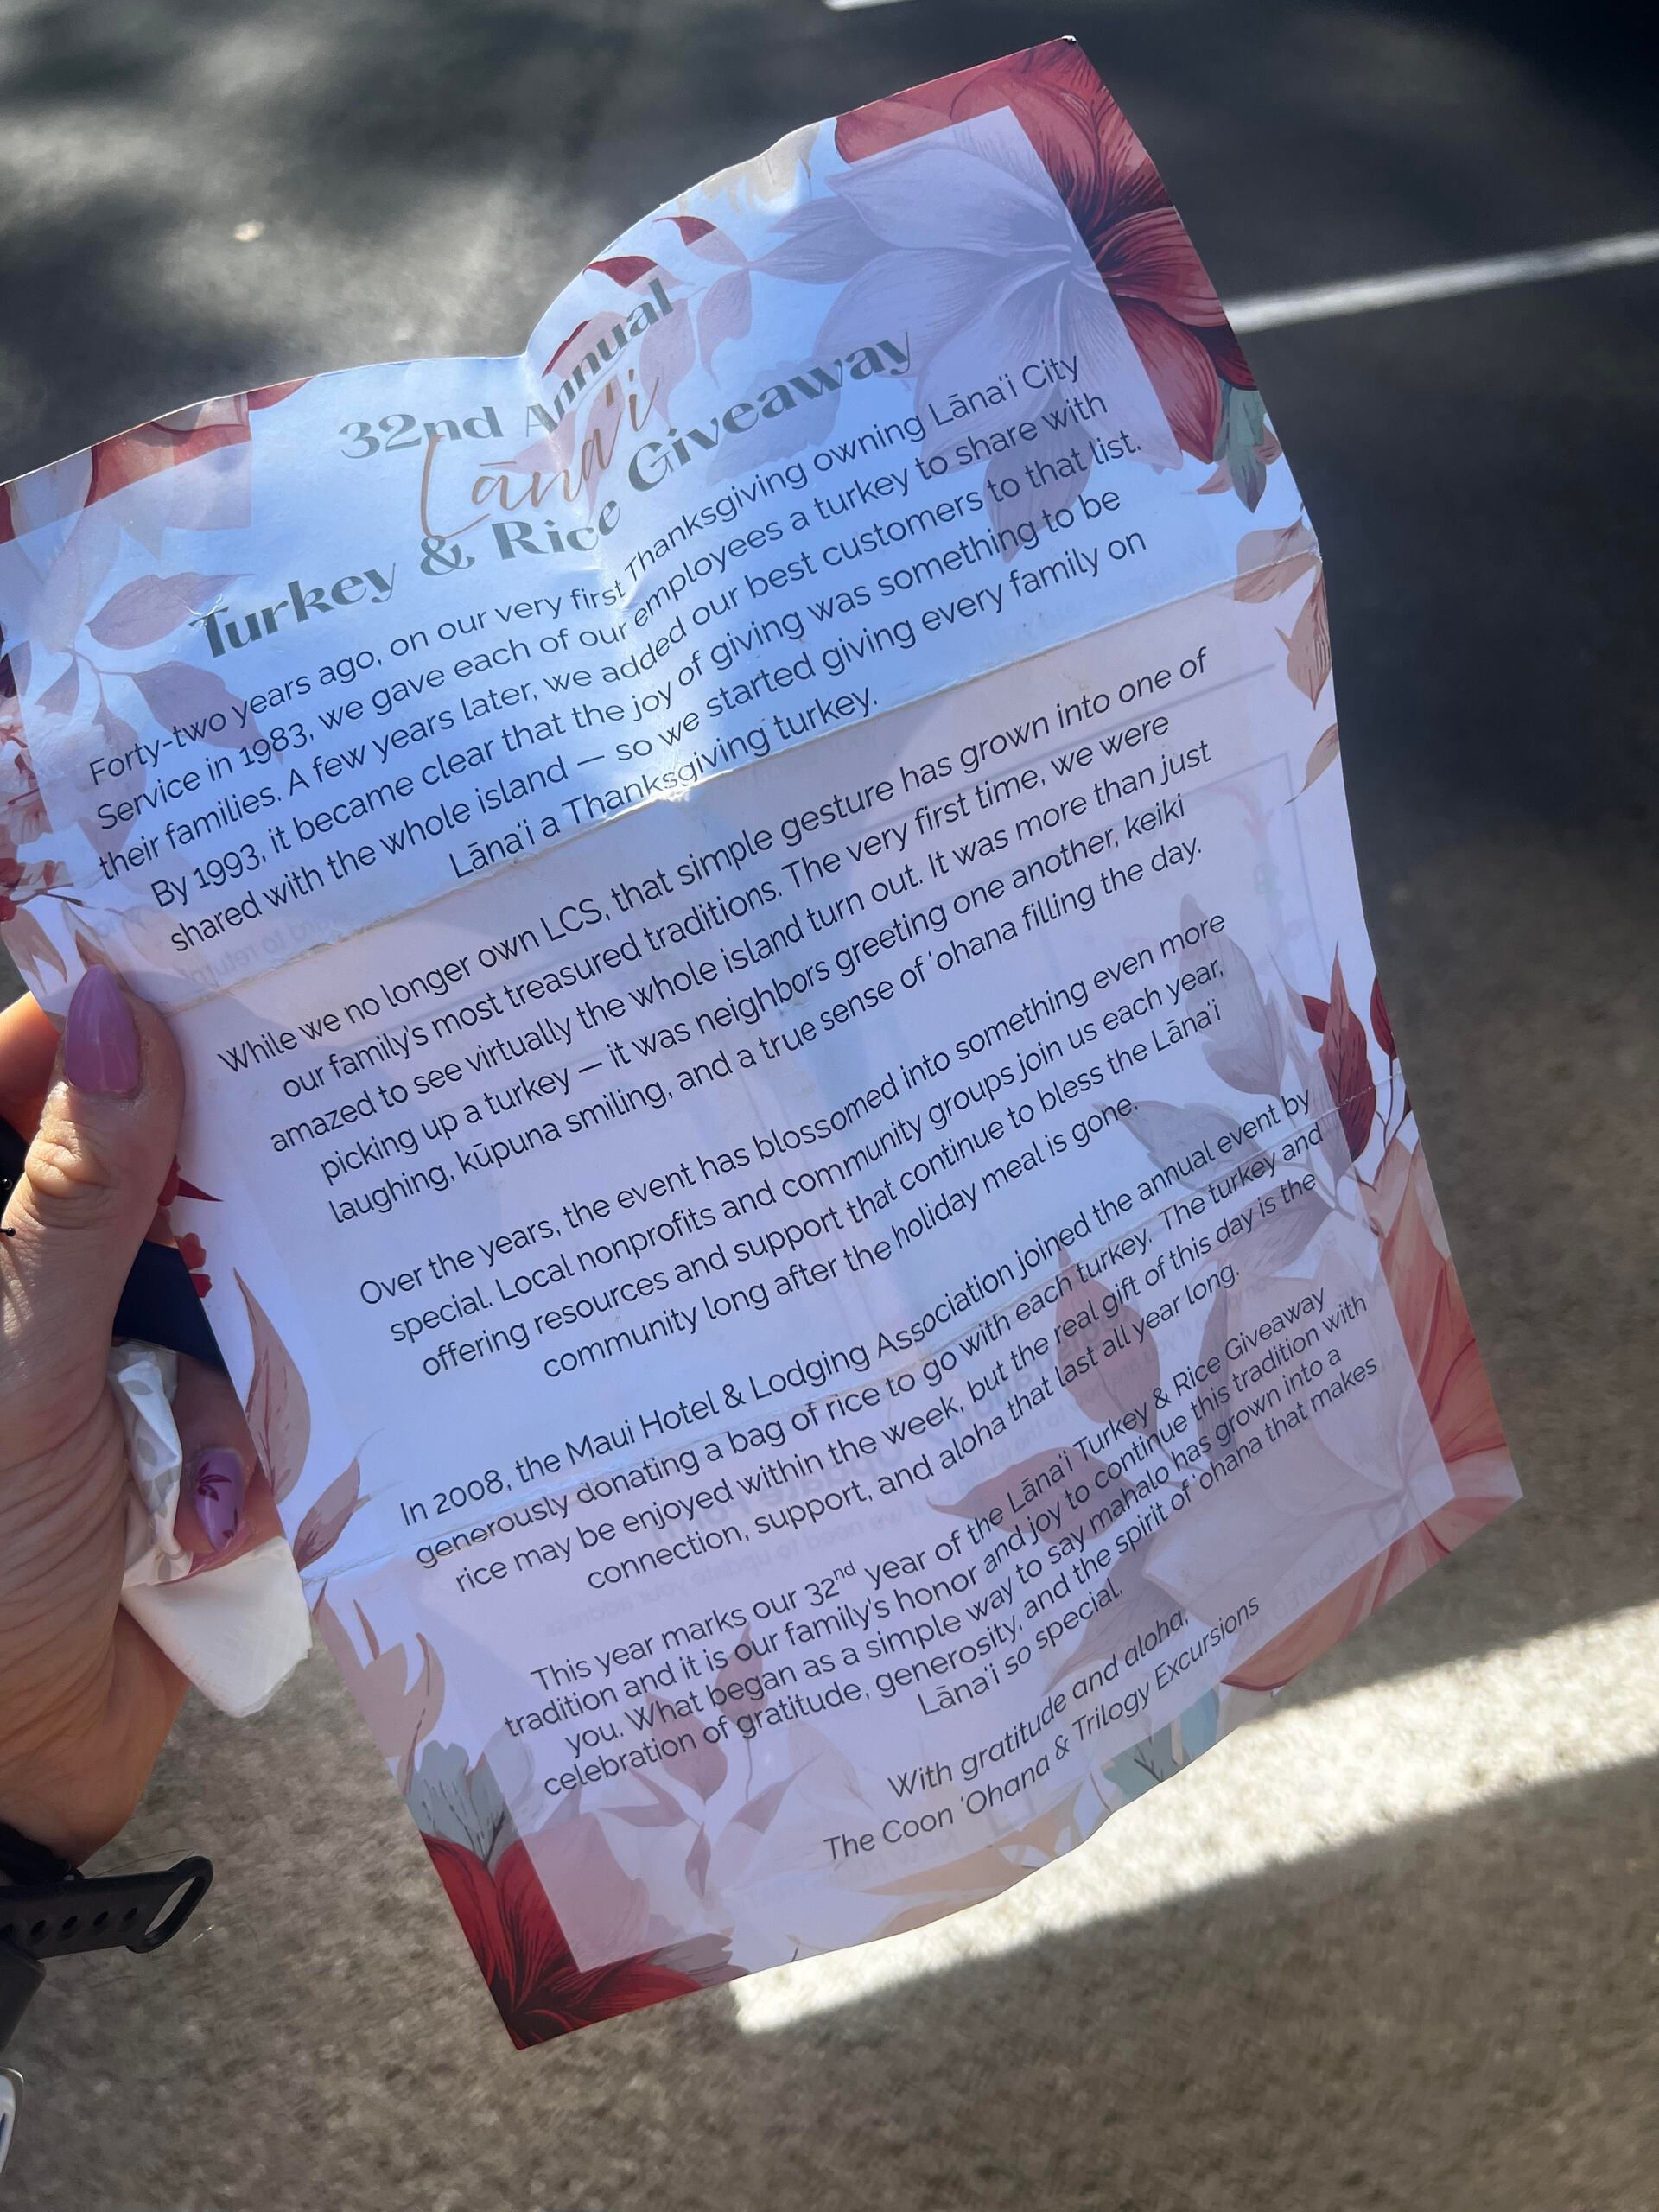 32nd Annual
Lāna'i
Turkey & Rice Giveaway
Forty-two years ago, on our very first Thanksgiving owning Lāna'i City
Service in 1983, we gave each of our employees a turkey to share with
their families. A few years later, we added our best customers to that list.
By 1993, it became clear that the joy of giving was something to be
shared with the whole island — so we started giving every family on
Lāna'i a Thanksgiving turkey.
While we no longer own LCS, that simple gesture has grown into one of
our family's most treasured traditions. The very first time, we were
amazed to see virtually the whole island turn out. It was more than just
picking up a turkey — it was neighbors greeting one another, keiki
laughing, kūpuna smiling, and a true sense of 'ohana filling the day.
Over the years, the event has blossomed into something even more
special. Local nonprofits and community groups join us each year,
offering resources and support that continue to bless the Lāna'i
community long after the holiday meal is gone.
In 2008, the Maui Hotel & Lodging Association joined the annual event by
generously donating a bag of rice to go with each turkey. The turkey and
rice may be enjoyed within the week, but the real gift of this day is the
connection, support, and aloha that last all year long.
This year marks our 32nd year of the Lāna'i Turkey & Rice Giveaway
tradition and it is our family's honor and joy to continue this tradition with
you. What began as a simple way to say mahalo has grown into a
celebration of gratitude, generosity, and the spirit of 'ohana that makes
Lāna'i so special.
With gratitude and aloha,
The Coon 'Ohana & Trilogy Excursions